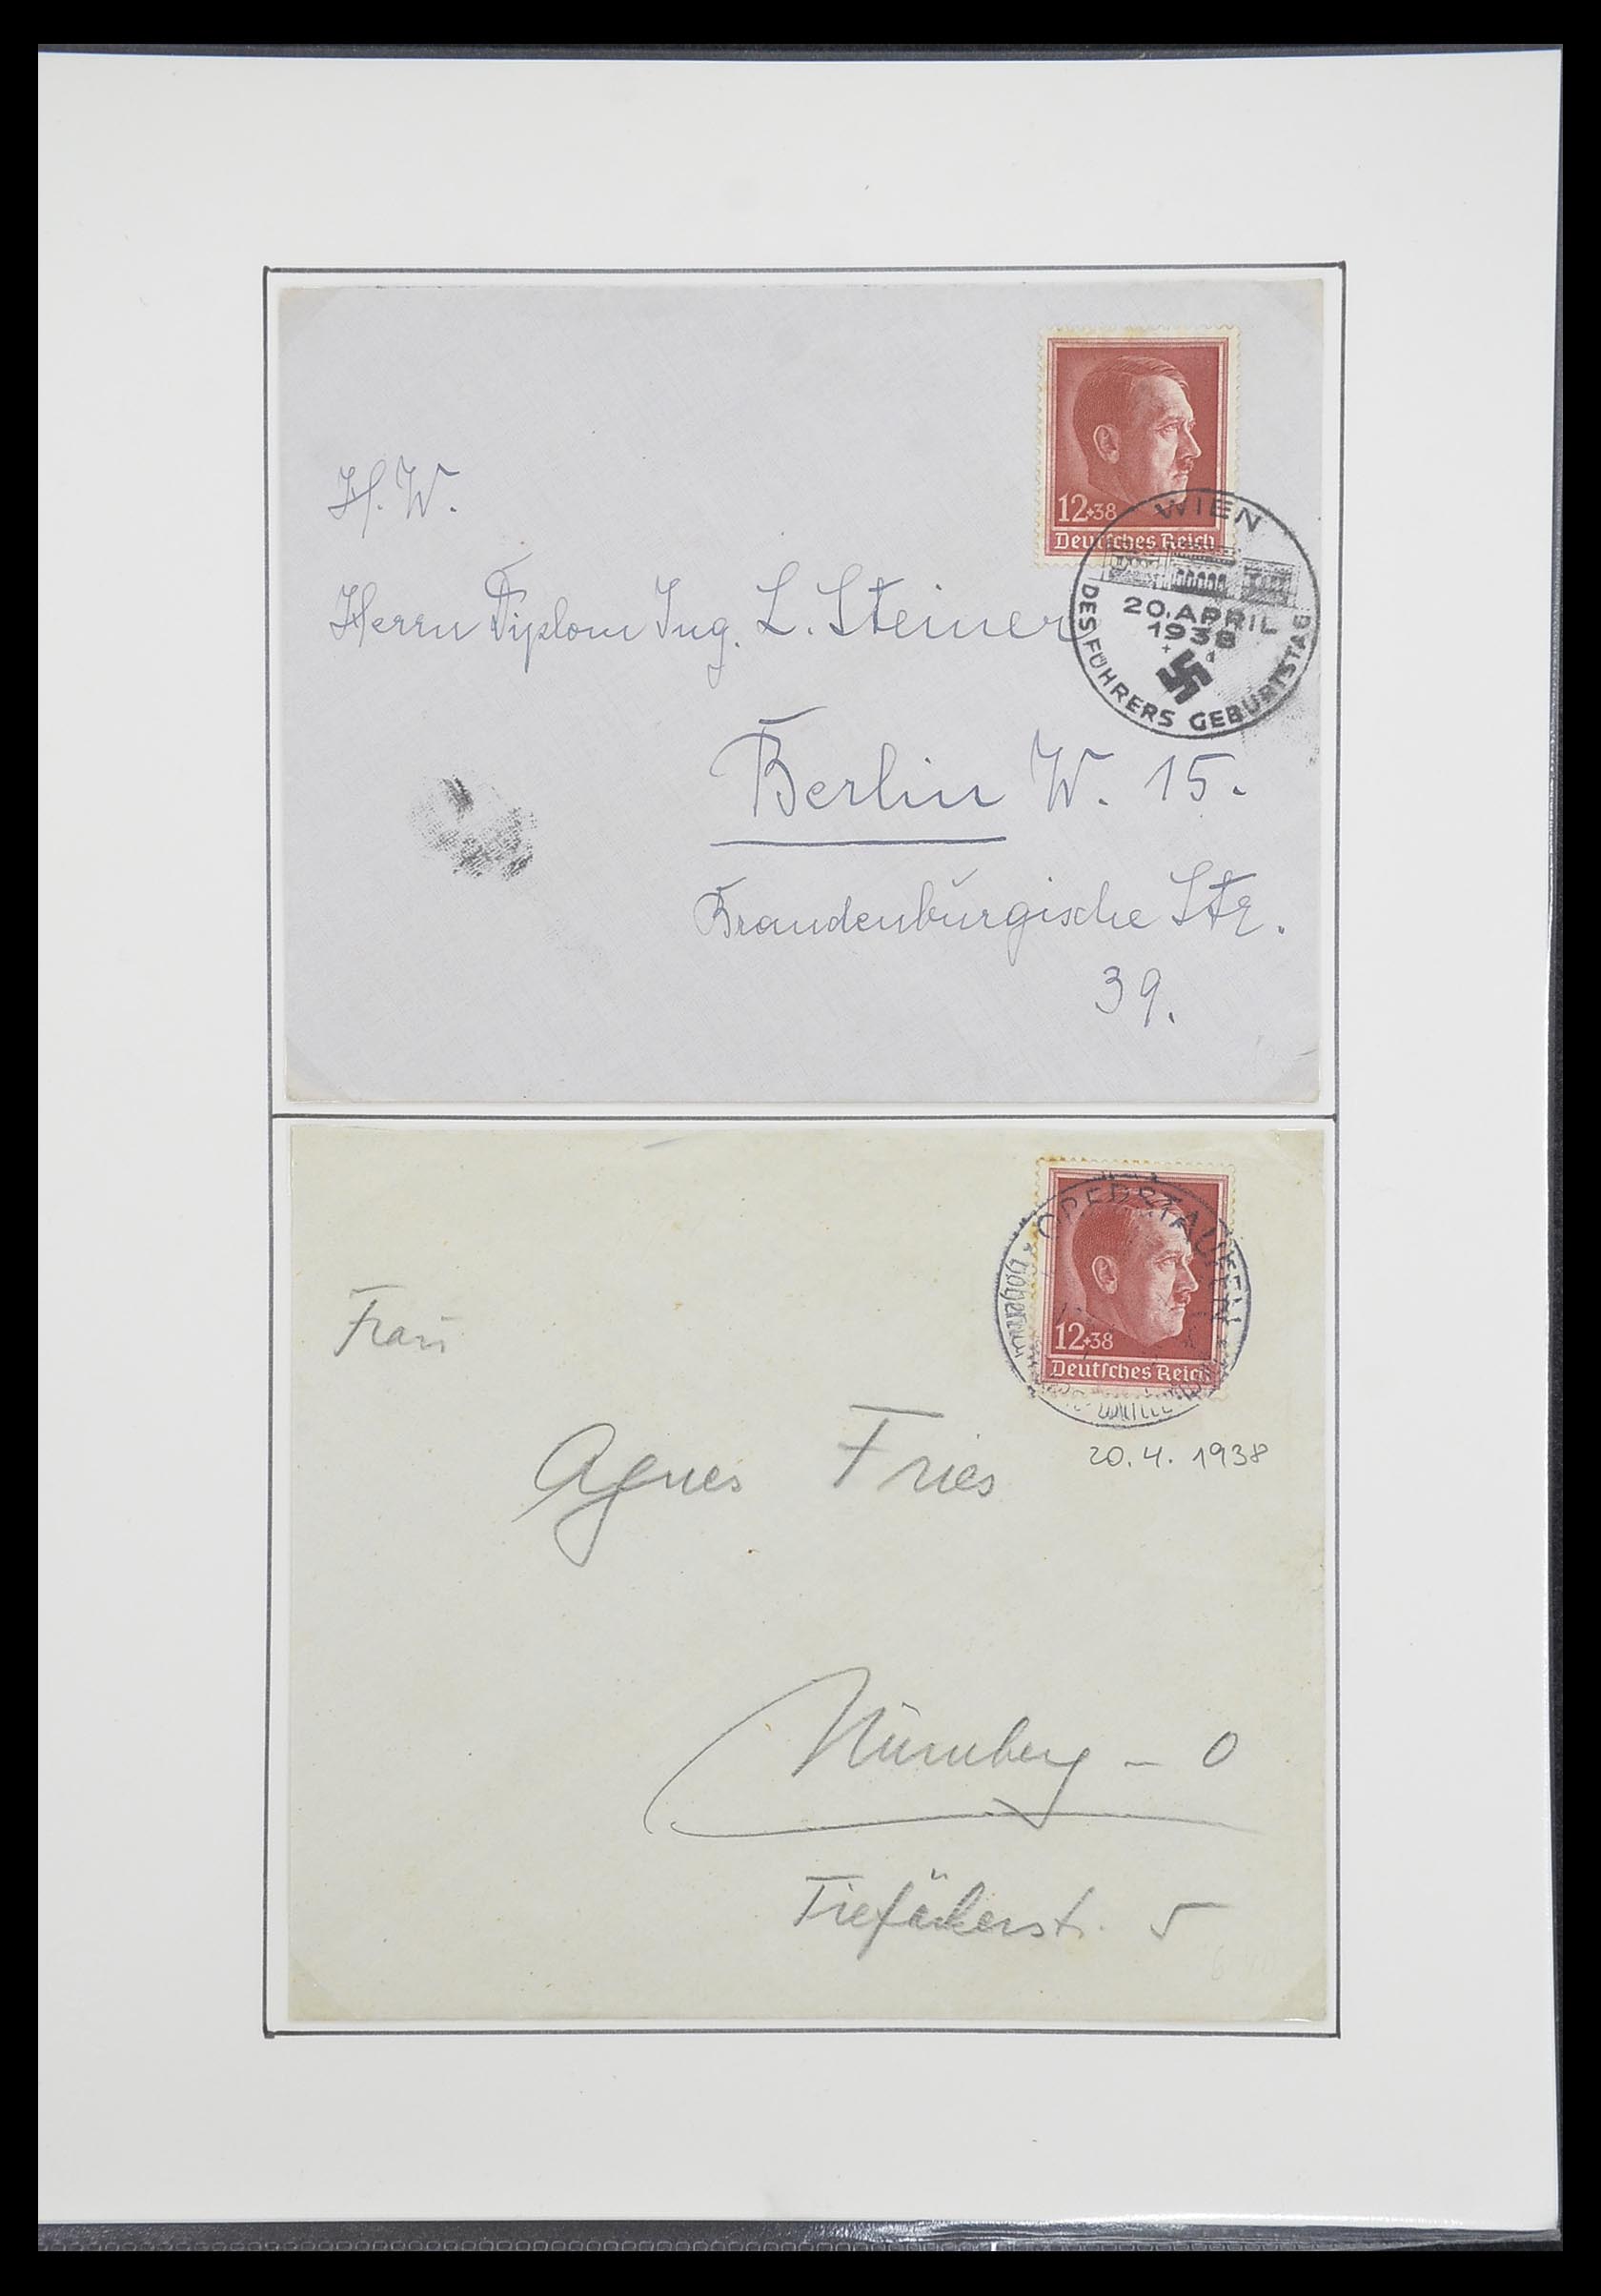 12+38
Deutſches Reich
WIEN
20. APRIL
1938
DES FÜHRERS GEBURTSTAG
H. W.
Herrn Diplom Ing. L. Steiner
Berlin W. 15.
Brandenburgische Str.
39.
12+38
Deutſches Reich
OBERSTAUFEN
20.4.1938
Frau
Agnes Fries
Nürnberg - O
Tiefäckerst. 5